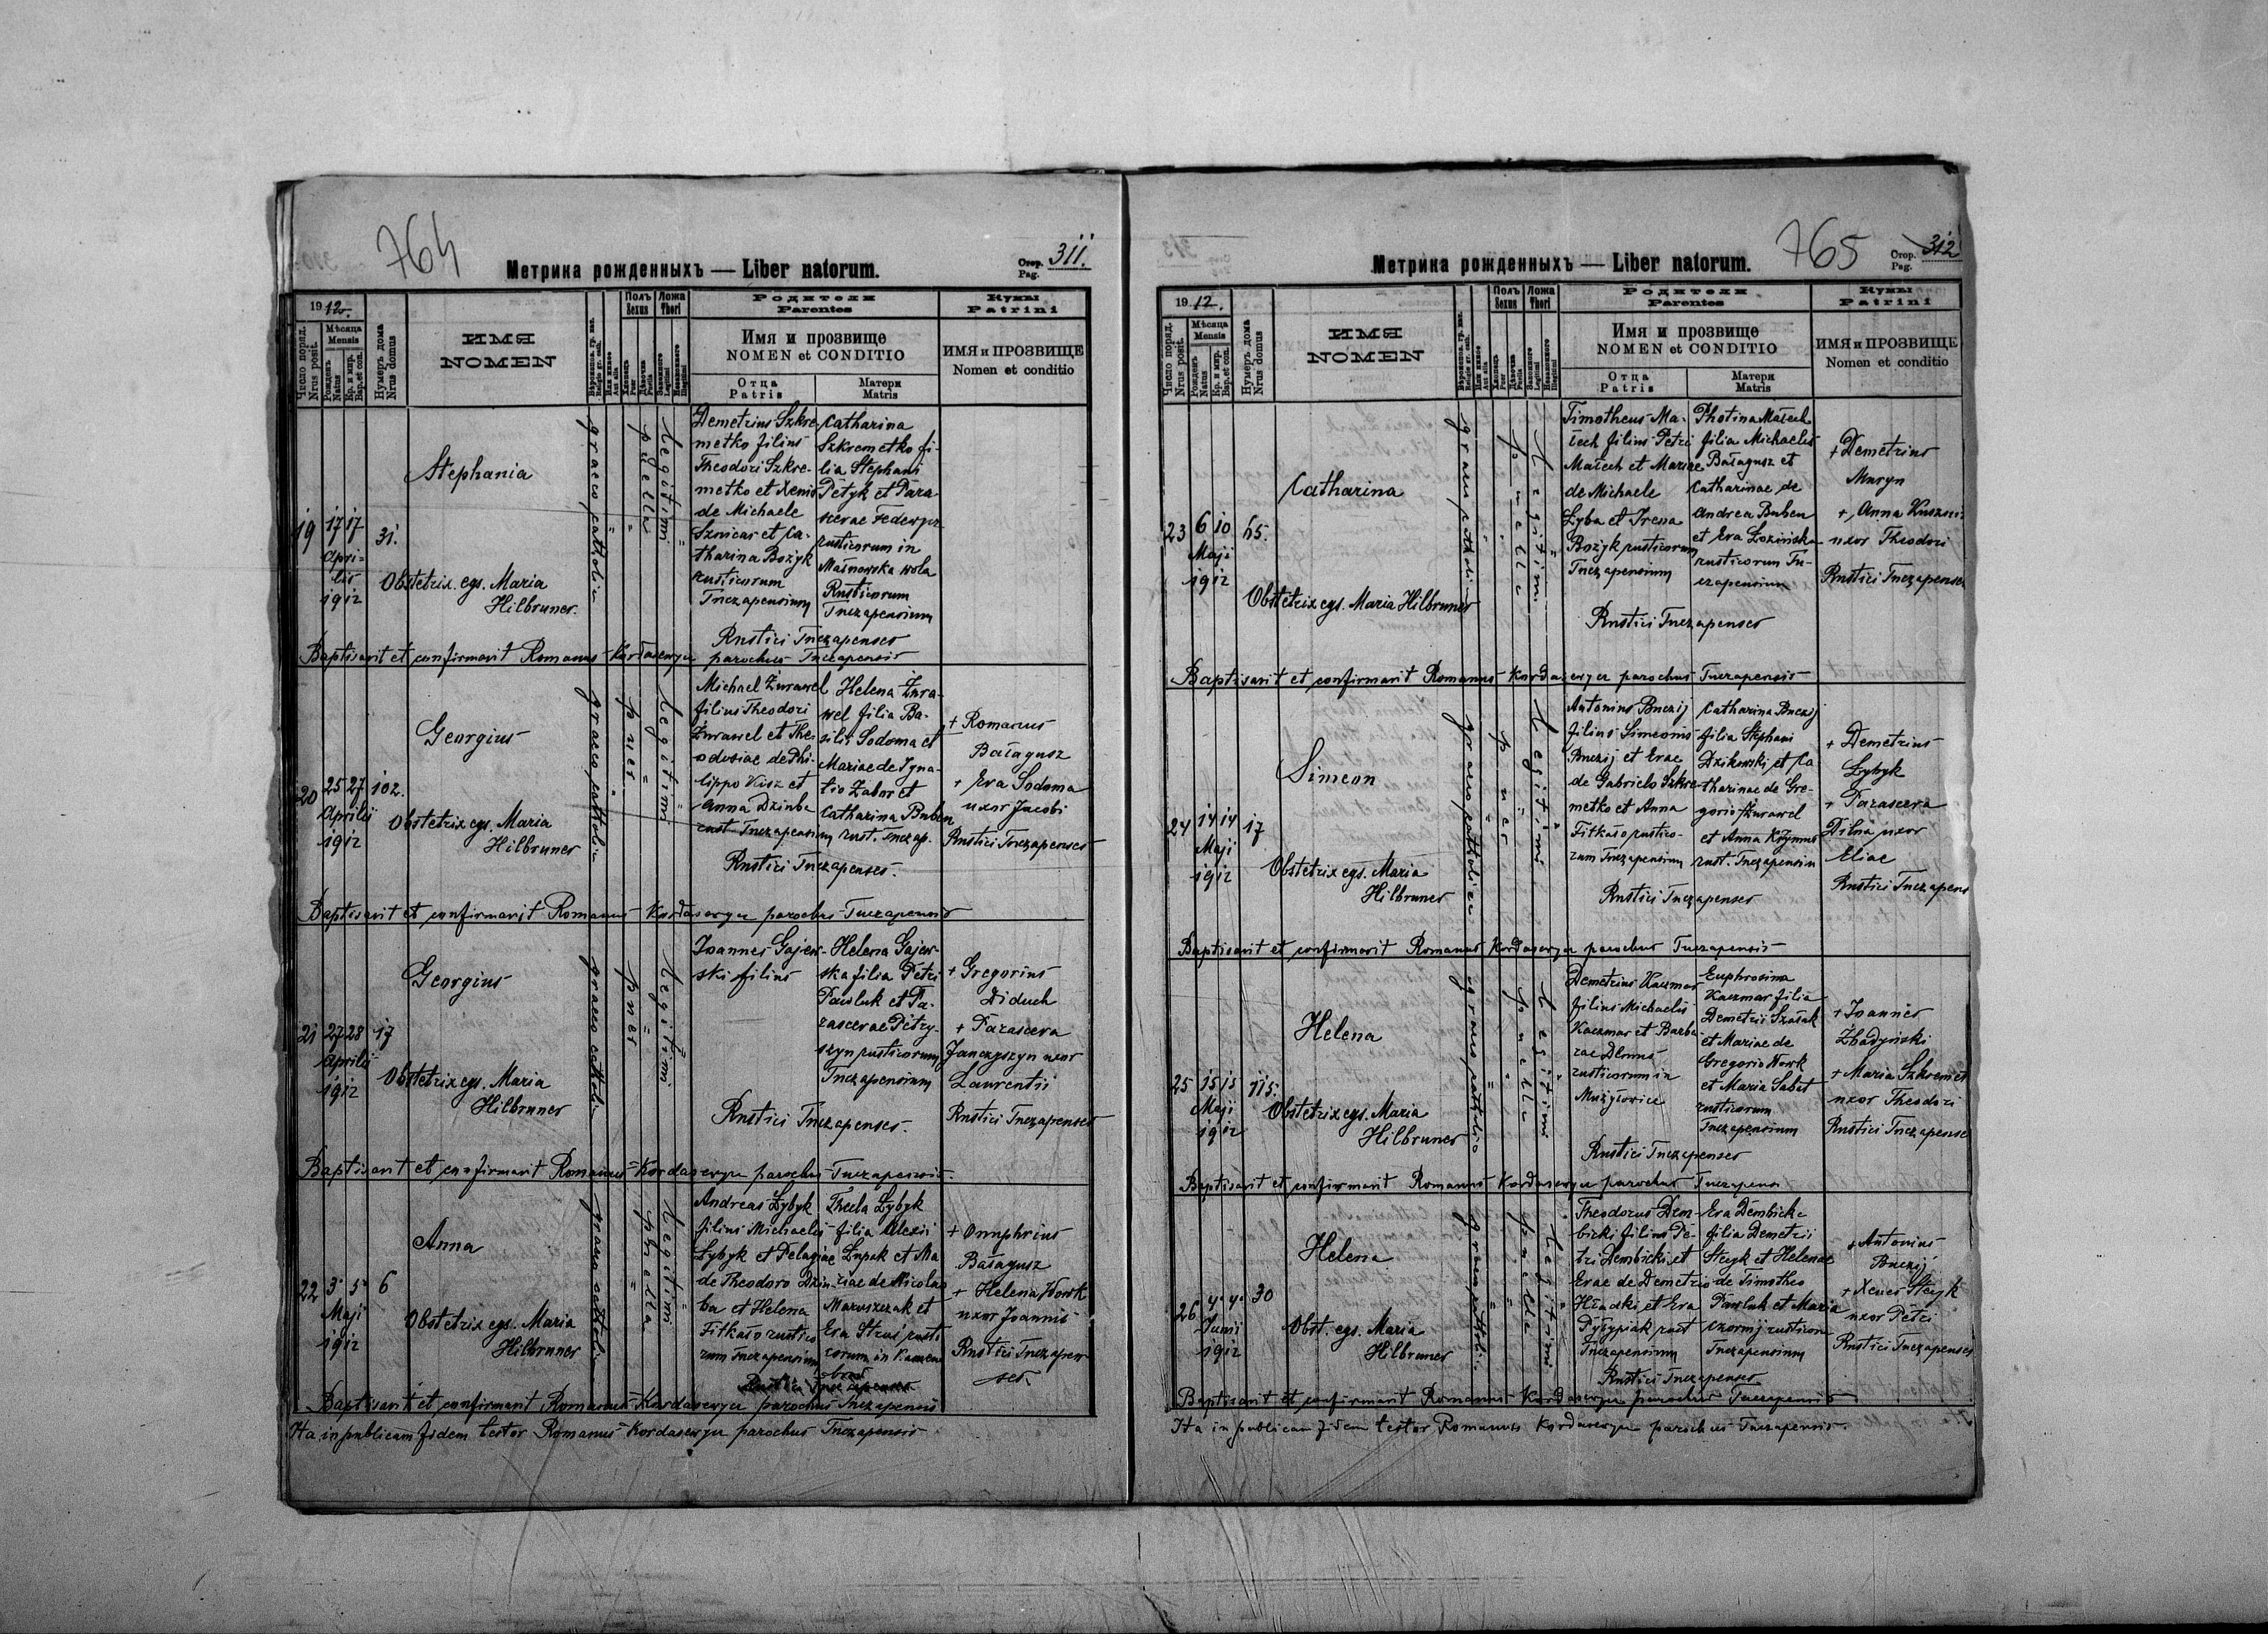 764
Метрика рожденныхъ — Liber natorum.
Стор. Pag. 311.
1912.
Число поряд. Nrus posit.
Мѣсяца Mensis
Рожденъ Natus
Кр. и мир. Bap. et con.
Нумеръ дома Nrus domus
ИМЯ
NOMEN
Полъ Sexus
Ложа Thori
Родители
Parentes
Имя и прозвище
NOMEN et CONDITIO
Отца Patris
Матери Matris
Кумы
Patrini
ИМЯ и ПРОЗВИЩЕ
Nomen et conditio
19
17 17
Aprilis
1912
31.
Stephania
Obstetrix egs. Maria
Hilbruner.
graeco catholica
puella
legitimi
Demetrius Szkre-
metko filius
Theodori Szkre-
metko et Xeniae
de Michaele
et Ca-
tharina Bożyk
rusticorum
Tuczapensium
Catharina
Szkremetko fi-
lia Stephani
Petyk et Para
scevae
rusticorum in
Małnowska wola
Rusticorum
Tuczapensium
Rustici Tuczapenses
Baptisavit et confirmavit Romanus Kordasewycz parochus Tuczapensis
20
25 27
Aprilis
1912
102.
Georgius
Obstetrix egs. Maria
Hilbruner
graeco catholica
puer
legitimi
Michael Żurawel
filius Theodori
Żurawel et The-
odosiae de Phi-
lippo Kisz et
Anna Dziuba
rust. Tuczapensium
Helena Żura-
wel filia Ba-
silii Sodoma et
Mariae de Igna-
tio Zabor et
Catharina Buben
rust. Tuczap.
+ Romanus
Bałagusz
+ Eva Sodoma
uxor Jacobi
Rustici Tuczapenses
Rustici Tuczapenses.
Baptisavit et confirmavit Romanus Kordasewycz parochus Tuczapensis
21
27 28
Aprilis
1912
17
Georgius
Obstetrix egs. Maria
Hilbruner
graeco catholica
puer
legitimi
Ioannes Gajew-
ski filius
Helena Gajew-
ska filia Petri
Pawluk et Pa-
rascevae Petry-
szyn rusticorum
Tuczapensium
+ Gregorius
Diduch
+ Parasceva
Janczyszyn uxor
Laurentii
Rustici Tuczapenses
Rustici Tuczapenses.
Baptisavit et confirmavit Romanus Kordasewycz parochus Tuczapensis.
22
3 5
Maji
1912
6
Anna
Obstetrix egs. Maria
Hilbruner
graeco catholica
puella
legitimi
Andreas Łybyk
filius Michaelis
Łybyk et Pelagiae
de Theodoro Dziu-
ba et Helena
Fitkało rustico
rum Tuczapensium
Thecla Łybyk
filia Alexii
Łupak et Ma
riae de Nicolao
Maruszczak et
Eva Struś rusti
corum in Kamien
brod
+ Onuphrius
Bałagusz
+ Helena Wowk
uxor Joannis
Rustici Tuczapen-
ses.
Rustici Tuczapenses
Baptisavit et confirmavit Romanus Kordasewycz parochus Tuczapensis
Ita in publicam fidem testor Romanus Kordasewycz parochus Tuczapensis
765
Метрика рожденныхъ — Liber natorum.
Стор. Pag. 312
1912.
Число поряд. Nrus posit.
Мѣсяца Mensis
Рожденъ Natus
Кр. и мир. Bap. et con.
Нумеръ дома Nrus domus
ИМЯ
NOMEN
Полъ Sexus
Ложа Thori
Родители
Parentes
Имя и прозвище
NOMEN et CONDITIO
Отца Patris
Матери Matris
Кумы
Patrini
ИМЯ и ПРОЗВИЩЕ
Nomen et conditio
23
6 10
Maji
1912
65.
Catharina
Obstetrix egs. Maria Hilbruner
puella
legitimi
Timotheus Ma-
łech filius Petri
Małech et Mariae
de Michaele
Łyba et Irena
Bożyk rusticorum
Tuczapensium
Photina Małech
filia Michaelis
Bałagusz et
Catharinae de
Andrea Buben
et Eva Łozińska
rusticorum Tu-
czapensium
+ Demetrius
Muryn
+ Anna
uxor Theodori
Rustici Tuczapenses
Rustici Tuczapenses
Baptisavit et confirmavit Romanus Kordasewycz parochus Tuczapensis
24
14 14
Maji
1912
17
Simeon
Obstetrix egs. Maria
Hilbruner
graeco catholica
puer
legitimi
Antonius Buczij
filius Simeonis
Buczij et Evae
de Gabriele Szkre-
metko et Anna
Fitkało rustico-
rum Tuczapensium
Catharina Buczij
filia Stephani
Dzikowski et Ca
tharinae de Gre-
gorio Żurawel
et Anna
rust. Tuczapensium
+ Demetrius
Łybyk
+ Parasceva
uxor
Eliae
Rustici Tuczapens
Rustici Tuczapenses
Baptisavit et confirmavit Romanus Kordasewycz parochus Tuczapensis
25
15 15
Maji
1912
115.
Helena
Obstetrix egs. Maria
Hilbruner
puella
legitimi
Demetrius Kaczmar
filius Michaelis
Kaczmar et Barba
rae
rusticorum in
Mużyłowice
Euphrosina
Kaczmar filia
Demetrii Szałak
et Mariae de
Gregorio Wowk
et Maria Sabat
rusticorum
Tuczapensium
+ Ioannes
Żbadyński
+ Maria Szkremet
uxor Theodori
Rustici Tuczapense
Rustici Tuczapenses
Baptisavit et confirmavit Romanus Kordasewycz parochus Tuczapens
26
4. 4.
Junii
1912
30
Helena
Obst. egs. Maria
Hilbruner
puella
legitimi
Theodorus Dem-
bicki filius Pe-
tri Dembicki et
Evae de Demetrio
Hładki et Eva
rust
Tuczapensium
Eva Dembicka
filia Demetrii
Stcyk et Helenae
de Timotheo
Pawluk et Maria
rusticoru
Tuczapensium
+ Antonius
Buczij
+ Xenia Stcyk
uxor Petri
Rustici Tuczapenses
Rustici Tuczapenses
Baptisavit et confirmavit Romanus Kordasewycz parochus Tuczapensis
Ita in publicam fidem testor Romanus Kordasewycz parochus Tuczapensis.